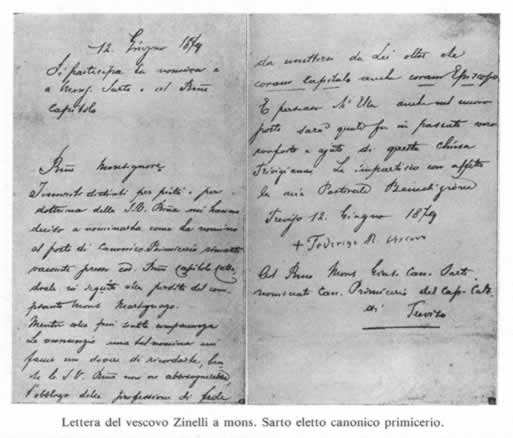 12. Giugno 1879
Si partecipa la nomina
a Mons. Sarto e al
Capitolo
Monsignore
I meriti distinti per pietà e per
dottrina della S.V. mi hanno
deciso a nominarla come la nomino
al posto di Canonico Primicerio rimasto
vacante presso Capitolo Catte-
drale in seguito alla perdita del com-
pianto Mons.
Mentre colla più
Le una tal nomina mi
faccio un dovere di ricordarle,
la S.V. non
l'obbligo della professione di fede
da emettersi da Lei oltre che
coram Capitulo anche coram Episcopo.
E persuaso Ella anche nel nuovo
posto sarà quale fu in passato vero
conforto e ajuto di questa chiesa
Trivigiana, Le impartisco con affetto
la mia Pastorale Benedizione
Treviso 12. Giugno 1879
+ Federico M. Vescovo
Al Mons. Gius. Can. Sarto
nominato Can. Primicerio del Cap. Catt.
di Treviso
Lettera del vescovo Zinelli a mons. Sarto eletto canonico primicerio.